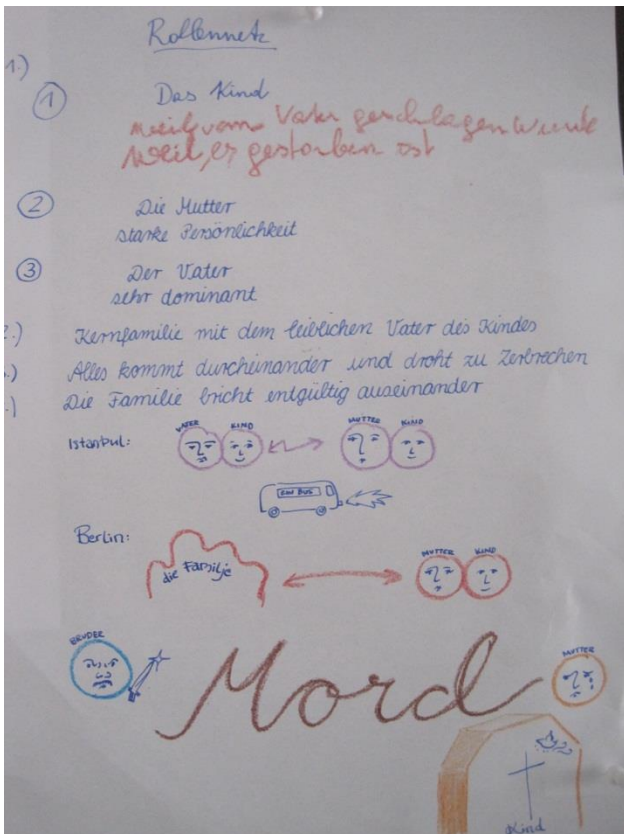 Rollennetz
1.)
① Das Kind
weil, vom Vater geschlagen wurde
weil, er gestorben ist
② Die Mutter
starke Persönlichkeit
③ Der Vater
sehr dominant
2.) Kernfamilie mit dem leiblichen Vater des Kindes
.) Alles kommt durcheinander und droht zu Zerbrechen
.) Die Familie bricht entgültig auseinander
Istanbul: VATER KIND MUTTER KIND
EIN BUS
Berlin: die Familje MUTTER KIND
BRUDER Mord MUTTER
Kind